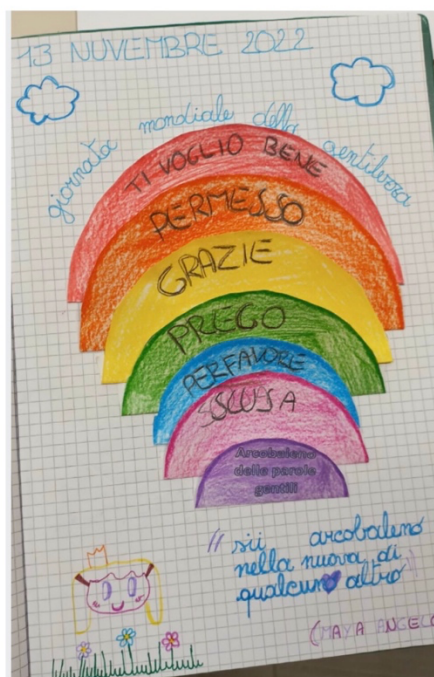 13 NUVEMBRE 2022
giornata mondiale della gentilezza
TI VOGLIO BENE
PERMESSO
GRAZIE
PREGO
PERFAVORE
SCUSA
Arcobaleno
delle parole
gentili
"sii arcobaleno
nella nuova di
qualcuno altro"
(MAYA ANGELO